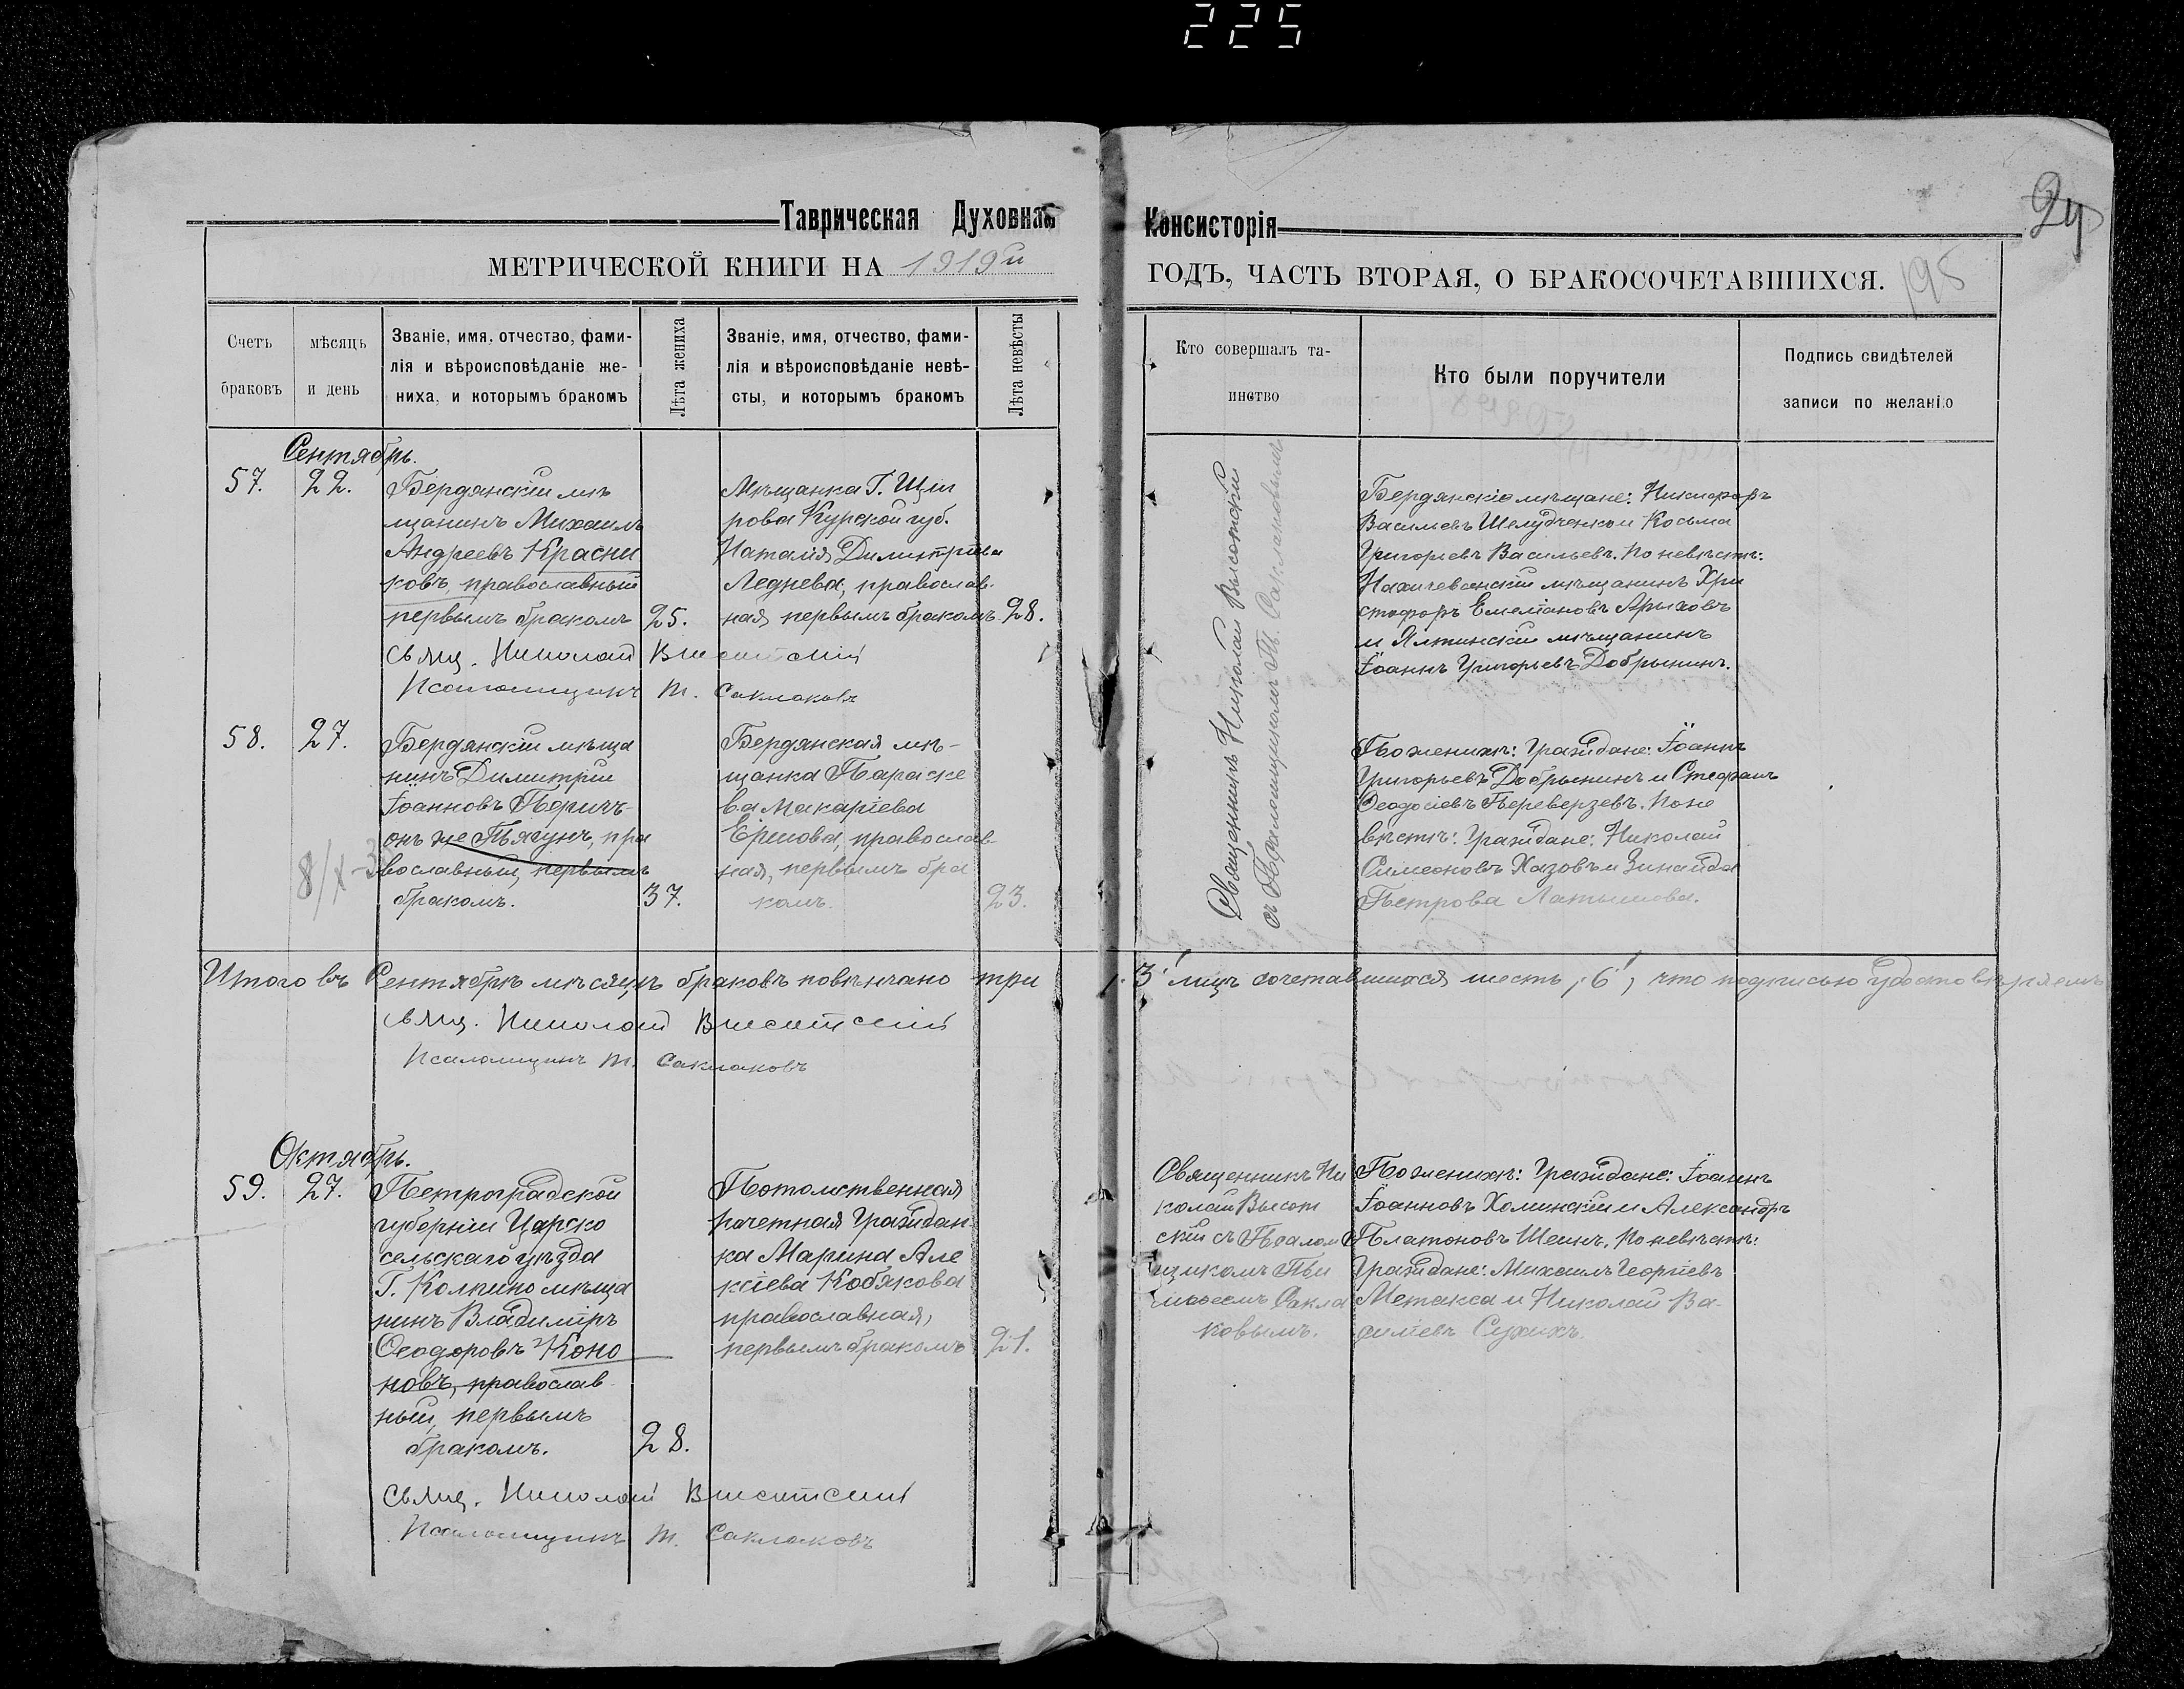 225
Таврическая Духовная Консисторія
24
МЕТРИЧЕСКОЙ КНИГИ НА 1919й ГОДЪ, ЧАСТЬ ВТОРАЯ, О БРАКОСОЧЕТАВШИХСЯ.
195
Счетъ
браковъ
мѣсяцъ
и день
Званіе, имя, отчество, фами-
лія и вѣроисповѣданіе же-
ниха, и которымъ бракомъ
Лѣта жениха
Званіе, имя, отчество, фами-
лія и вѣроисповѣданіе невѣ-
сты, и которымъ бракомъ
Лѣта невѣсты
Кто совершалъ та-
инство
Кто были поручители
Подпись свидѣтелей
записи по желанію
Сентябрь.
57.
22.
Бердянскій мѣ
щанинъ Михаилъ
Андреевъ Красни
ковъ, православный
первымъ бракомъ
25.
Мѣщанка Г. Щиг
рова Курской губ.
Наталія Димитріева
Леднева, православ-
ная, первымъ бракомъ.
28.
Священникъ Николай Высотскій
съ Псаломщикомъ Т. Саклаковымъ
Бердянскіе мѣщане: Никифоръ
Васильевъ Шелудченко и Косьма
Григорьевъ Васильевъ. По невѣстѣ:
Нахичеванскій мѣщанинъ Хри
стофоръ Емеліановъ Арыховъ
и Ялтинскій мѣщанинъ
Іоаннъ Григорьевъ Добрынинъ.
Свящ. Николай Высотскій
Псаломщикъ Т. Саклаковъ
58.
27.
Бердянскій мѣща
нинъ Димитрій
Іоанновъ
онъ же Пьягунъ, пра
вославный, первымъ
бракомъ.
37.
8/X-3
Бердянская мѣ-
щанка Параске
ва Макаріева
Ершова, православ-
ная, первымъ бра
комъ.
23.
По женихѣ: Граждане: Іоаннъ
Григорьевъ Добрынинъ и Стефанъ
Ѳеодосіевъ Переверзевъ. По не
вѣстѣ: Граждане: Николай
Симеоновъ Хазовъ и Зинаида
Петрова Латышова.
Итого въ Сентябрѣ мѣсяцѣ браковъ повѣнчано три "3" лицъ сочетавшихся шесть "6", что подписью удостовѣряемъ
Свящ. Николай Высотскій
Псаломщикъ Т. Саклаковъ
Октябрь.
59.
27.
Петроградской
губерніи Царско
сельскаго уѣзда
Г. Колпино мѣща
нинъ Владиміръ
Ѳеодоровъ Коно
новъ, православ
ный, первымъ
бракомъ.
28.
Потомственная
почетная Граждан
ка Марина Але
ксіева Кобякова
православная,
первымъ бракомъ
21.
Священникъ Ни
колай Высот
скій съ Псалом
щикомъ Ти
мофеемъ Сакла
ковымъ.
По женихѣ: Граждане: Іоаннъ
Іоанновъ Холинскій и Александръ
Платоновъ Шеинъ. По невѣстѣ:
Граждане: Михаилъ Георгіевъ
Метакса и Николай Ва-
силіевъ Сухихъ.
Свящ. Николай Высотскій
Псаломщикъ Т. Саклаковъ